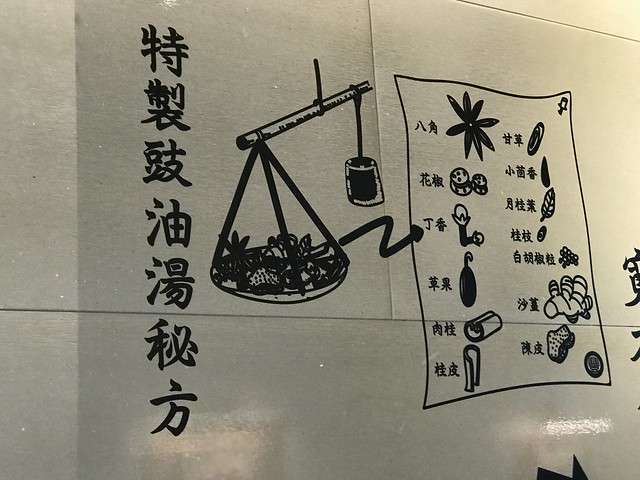 特製豉油湯秘方
八角
花椒
丁香
草果
肉桂
桂皮
甘草
小茴香
月桂葉
桂枝
白胡椒粒
沙薑
陳皮